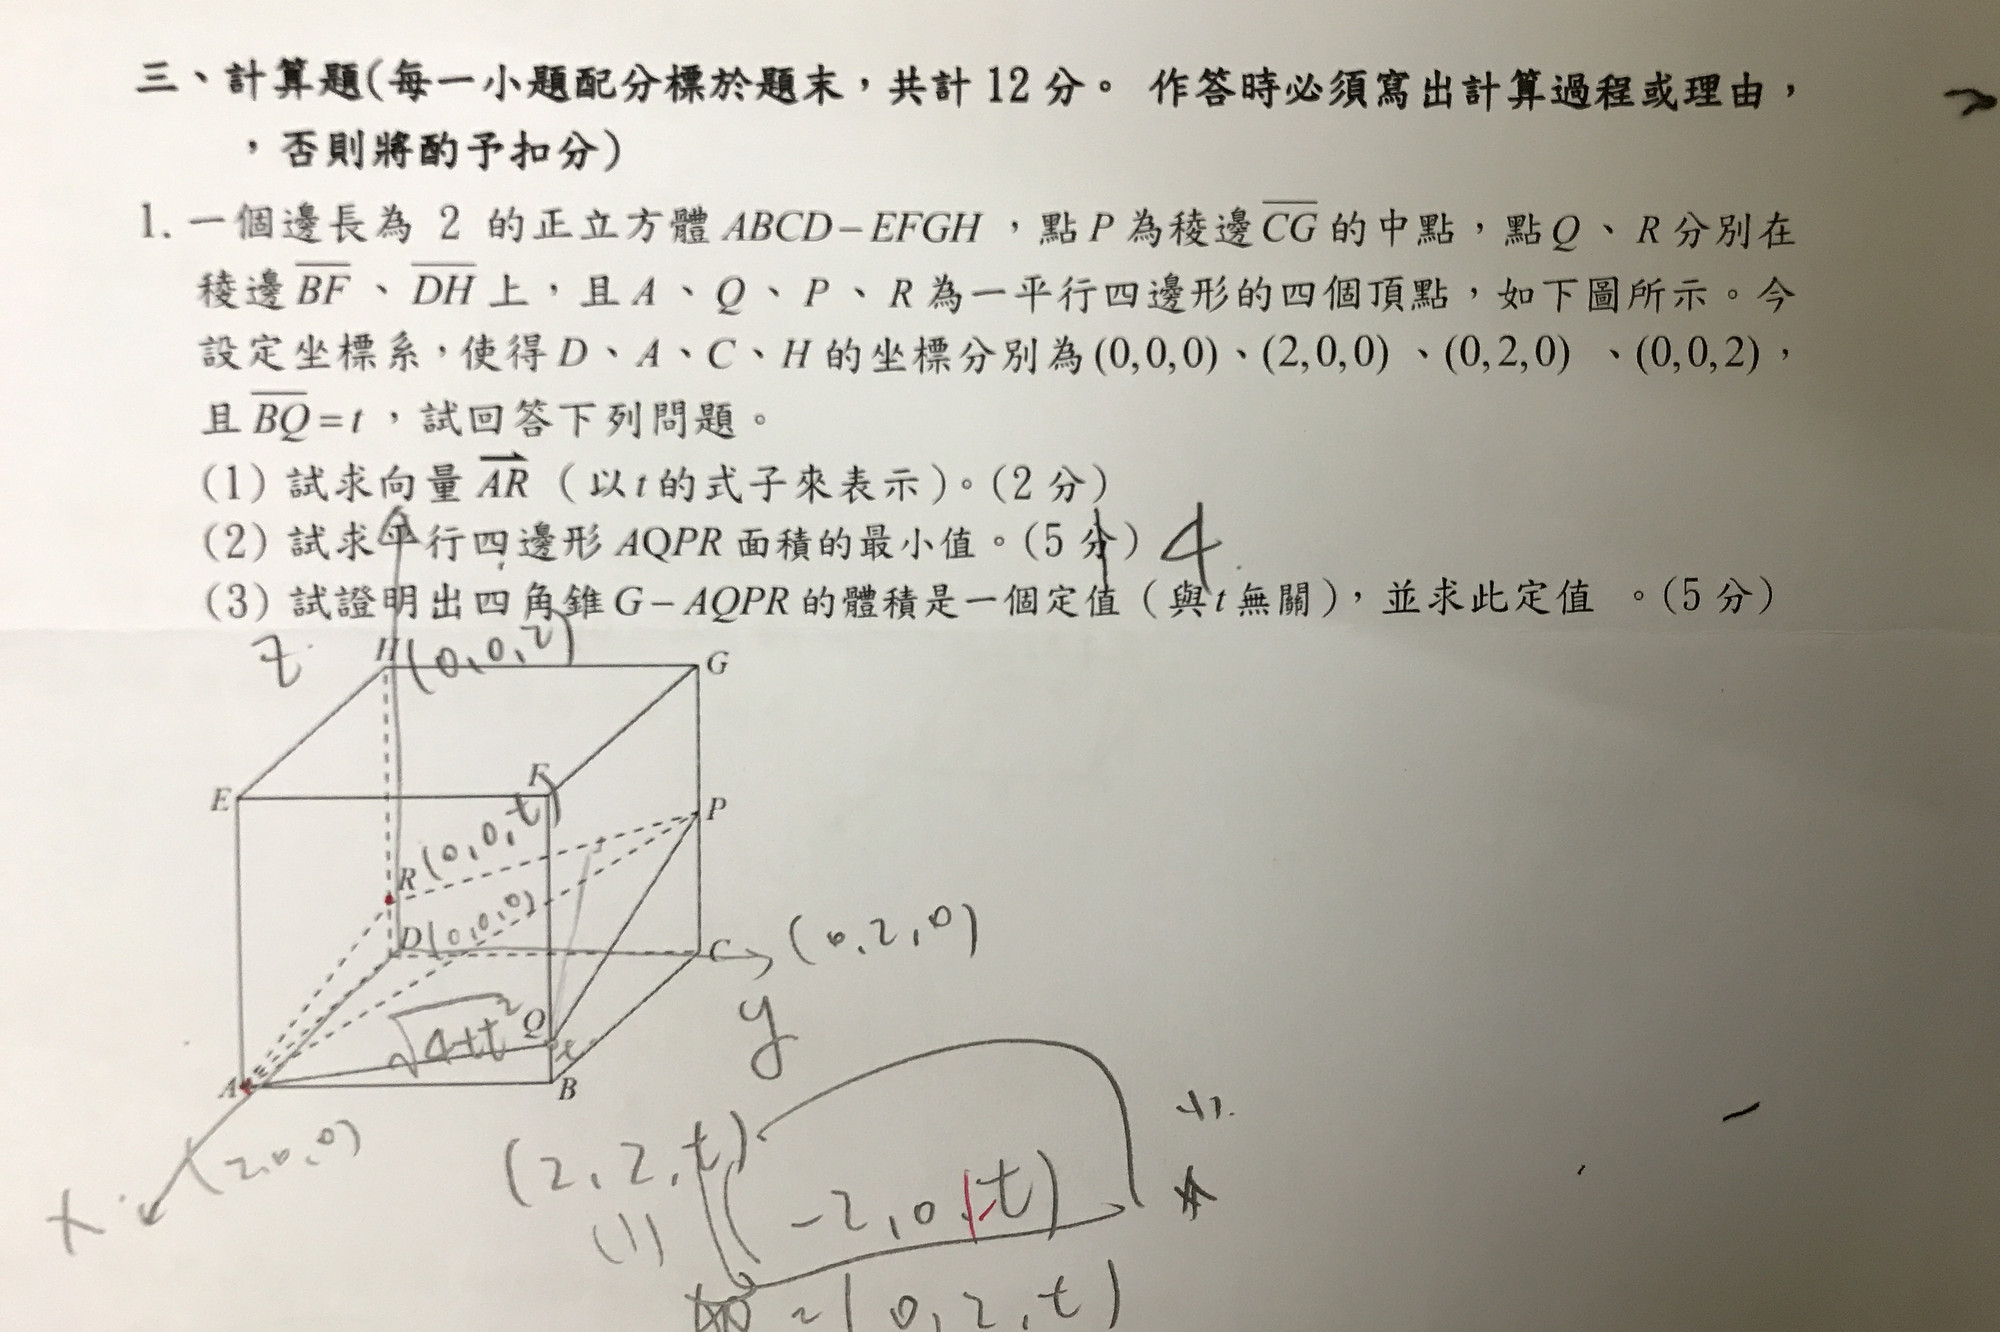 三、計算題(每一小題配分標於題末，共計 12 分。 作答時必須寫出計算過程或理由，
，否則將酌予扣分)
1. 一個邊長為 2 的正立方體 ABCD－EFGH ，點 P 為稜邊 CG 的中點，點 Q 、 R 分別在
稜邊 BF 、 DH 上，且 A 、 Q 、 P 、 R 為一平行四邊形的四個頂點，如下圖所示。今
設定坐標系，使得 D 、 A 、 C 、 H 的坐標分別為 (0,0,0) 、(2,0,0) 、(0,2,0) 、(0,0,2)，
且 BQ = t ，試回答下列問題。
(1) 試求向量 AR （以 t 的式子來表示）。(2 分)
(2) 試求平行四邊形 AQPR 面積的最小值。(5 分) 4
(3) 試證明出四角錐 G－AQPR 的體積是一個定值（與 t 無關），並求此定值 。(5 分)
z
H (0,0,2) G
E F P
R (0,0,t)
D (0,0,0) C (0,2,0)
y
√4+t² Q t
A B
(2,0,0)
x
(2,2,t)
(1) (-2,0,1-t)
=(0,2,t)